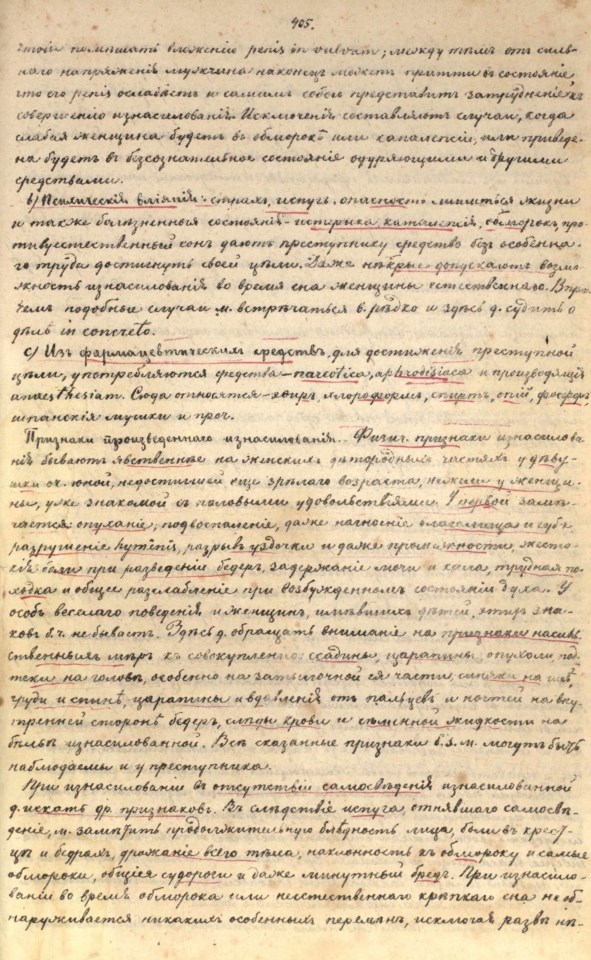 405.
чтобы помѣшать вложенію penis in vulvam; между тѣмъ отъ силь-
наго напряженія мужчина наконецъ можетъ притти въ состояніе,
что его penis ослабѣетъ и самимъ собою представитъ затрудненіе къ
совершенію изнасилованія. Исключенія составляютъ случаи, когда
слабая женщина будетъ въ обморокѣ или каталепсіи, или приведе-
на будетъ въ безсознательное состояніе одуряющими и другими
средствами.
b) Психическія вліянія: страхъ, испугъ, опасность лишиться жизни
и также болѣзненныя состоянія – истерика, каталепсія, обморокъ, про-
тивуестественный сонъ даютъ преступнику средство безъ особенна-
го труда достигнуть своей цѣли. Даже нѣкрые допускаютъ возмо-
жность изнасилованія во время сна женщины естественнаго. Впро-
темъ подобные случаи м. встрѣчаться в. рѣдко и здѣсь д. судить о
дѣлѣ in concreto.
c) Изъ фармацевтическихъ средствъ, для достиженія преступной
цѣли, употребляются средства – narcotica, aphrodisiaca и производящія
anaesthesiam. Сюда относятся – эѳиръ, хлороформъ, спиртъ, опій, фосфоръ,
шпанскія мушки и проч.
Признаки произведеннаго изнасилованія. Физич. признаки изнасилова-
нія бываютъ явственнѣе на женскихъ дѣтородныхъ частяхъ у дѣву-
шки ок. юной, недостигшей еще зрѣлаго возраста, нежели у женщи-
ны, уже знакомой съ половыми удовольствіями. У первой замѣ-
чается опуханіе, подвоспаленіе, даже нагноеніе влагалища и губъ,
разрушеніе hyminis, разрывъ уздечки и даже промежности, жесто-
кія боли при разведеніи бедеръ, задержаніе мочи и кала, трудная по-
ходка и общее разслабленіе при возбужденномъ состояніи духа. У
особъ веселаго поведенія и женщинъ, имѣвшихъ дѣтей, этихъ зна-
ковъ б. ч. не бываетъ. Здѣсь д. обращать вниманіе на признаки насиль-
ственныхъ мѣръ къ совокупленію: ссадины, царапины, опухоли, под-
теки на головѣ, особенно на затылочной ея части, синяки на шеѣ,
груди и спинѣ, царапины и вдавленія отъ пальцевъ и ногтей на вну-
тренней сторонѣ бедеръ, слѣды крови и сѣменной жидкости на
бѣльѣ изнасилованной. Всѣ сказанные признаки б. я. м. могутъ быть
наблюдаемы и у преступника.
При изнасилованіи въ отсутствіи самосвѣденія изнасилованной
д. искать др. признаковъ. Въ слѣдствіе испуга, отнявшаго самосвѣ-
деніе, м. замѣтить продолжительную блѣдность лица, боли въ крест-
цѣ и бедрахъ, дрожаніе всего тѣла, наклонность къ обмороку и самые
обмороки, общія судороги и даже минутный бредъ. При изнасило-
ваніи во время обморока или неестественнаго крѣпкаго сна не об-
наруживается никакихъ особенныхъ перемѣнъ, исключая развѣ нѣ-